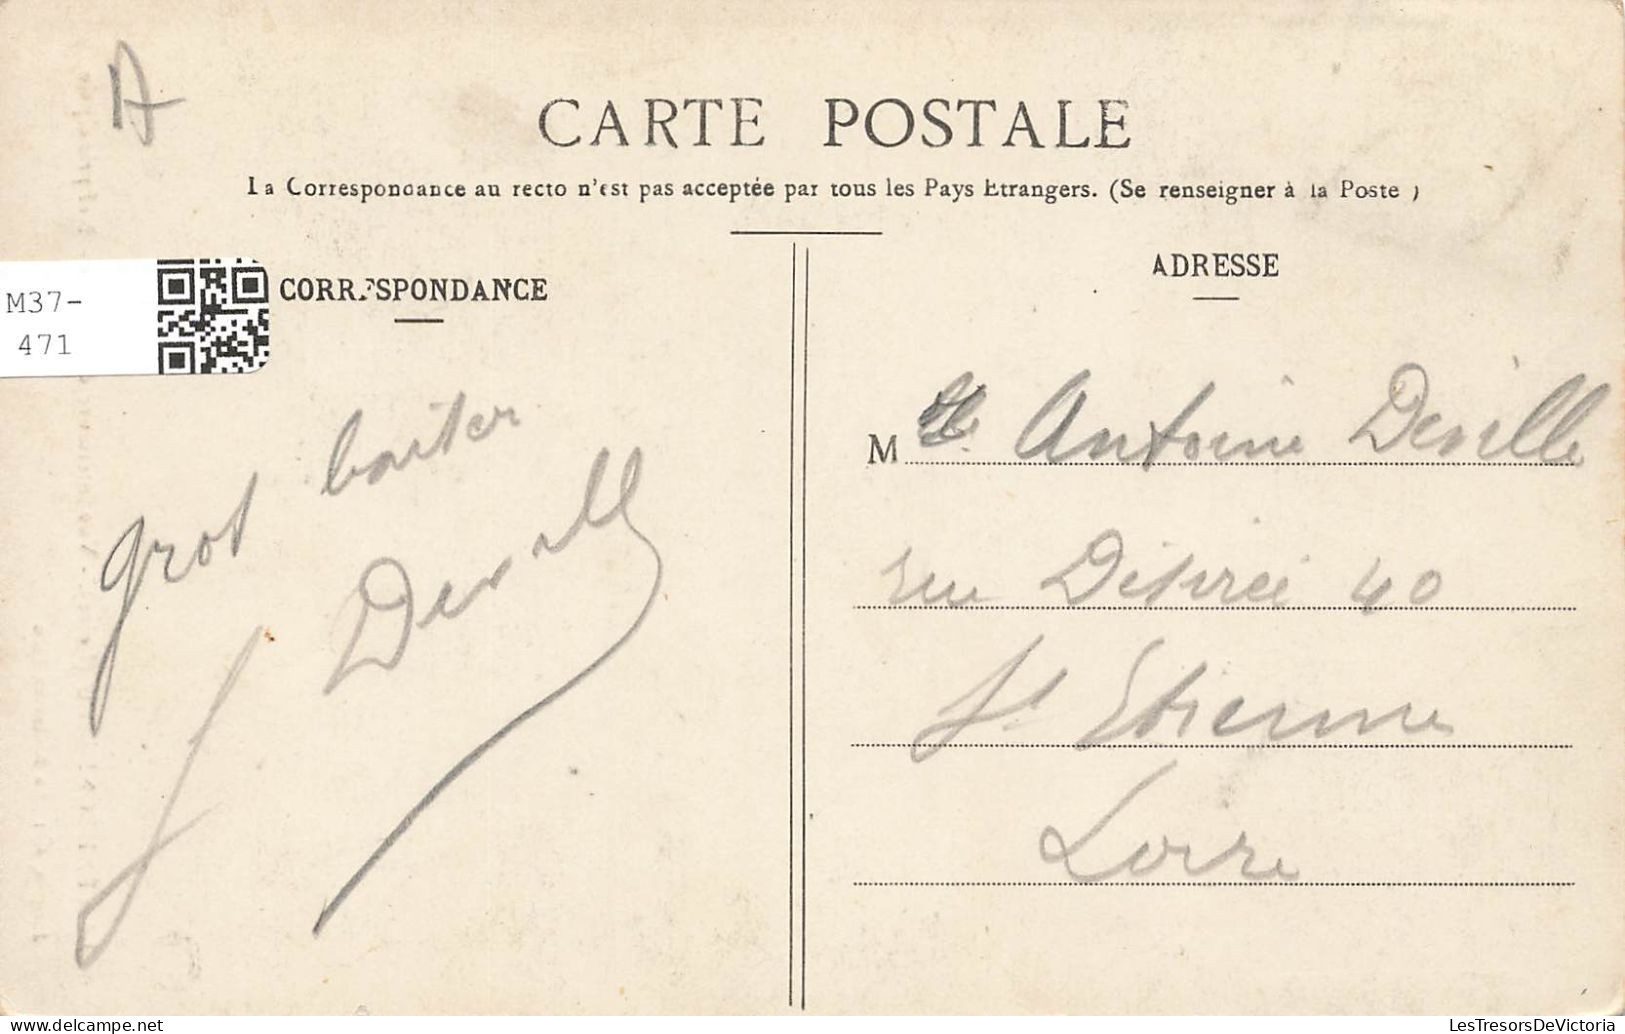 A
CARTE POSTALE
La Correspondance au recto n'est pas acceptée par tous les Pays Etrangers. (Se renseigner à la Poste)
M37-
471
CORRESPONDANCE
grot baiter
J Deville
ADRESSE
M Antoine Deville
rue Désirée 40
St Etienne
Loire
LesTresorsDeVictoria